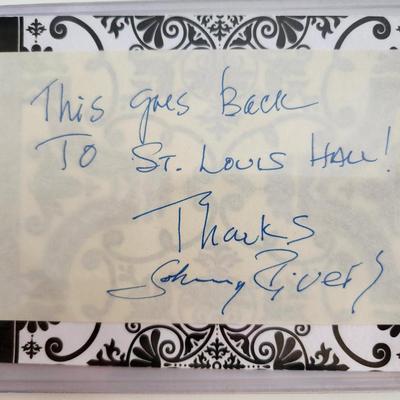 This Goes Back
To St. Louis Hall!
Thanks
Johnny Rivers